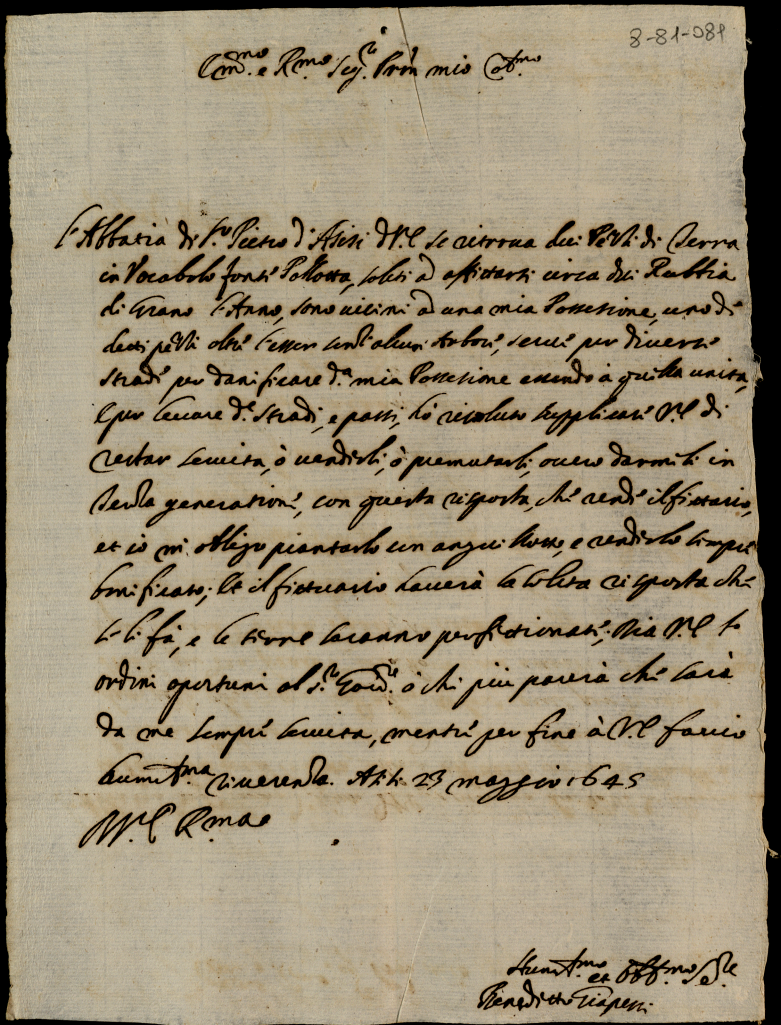 8-81-081
Em.mo e R.mo Sig.r Prōn mio Col.mo
L'Abbatia di S.to Pietro d'Asisi d V.E. se ritrova dui Pezzi di Terra
in Vocabolo fonte, soliti ad affittarsi circa dui Rubbia
di Grano l'Anno, sono vicini ad una mia Possesione, uno de
detti pezzi oltre l'esser senz'alcuni Arbori, serve per diverse
strade per danificare d.a mia Possesione essendo à quella unita,
e per levare d.e strade, e passi, hò risoluto supplicare V.E. di
restar servita, ò venderli, ò permutarli, overo darmeli in
terza generatione, con questa risposta, che rende il fittuario,
et io m'obligo piantarlo con, e renderlo sempre
bonificato; Et il fittuario haverà la solita risposta che
se li fà, e le terre saranno perfettionate; Dia V.E. li
ordini oportuni al S.r ò chi più parerà che sarà
da me sempre servita, mentre per fine à V.E. faccio
humiliss.ma riverenza. Asisi 23 maggio 1645
D V.E. R.ma
Humiliss.mo et Obblig.mo Se.re
Benedetto